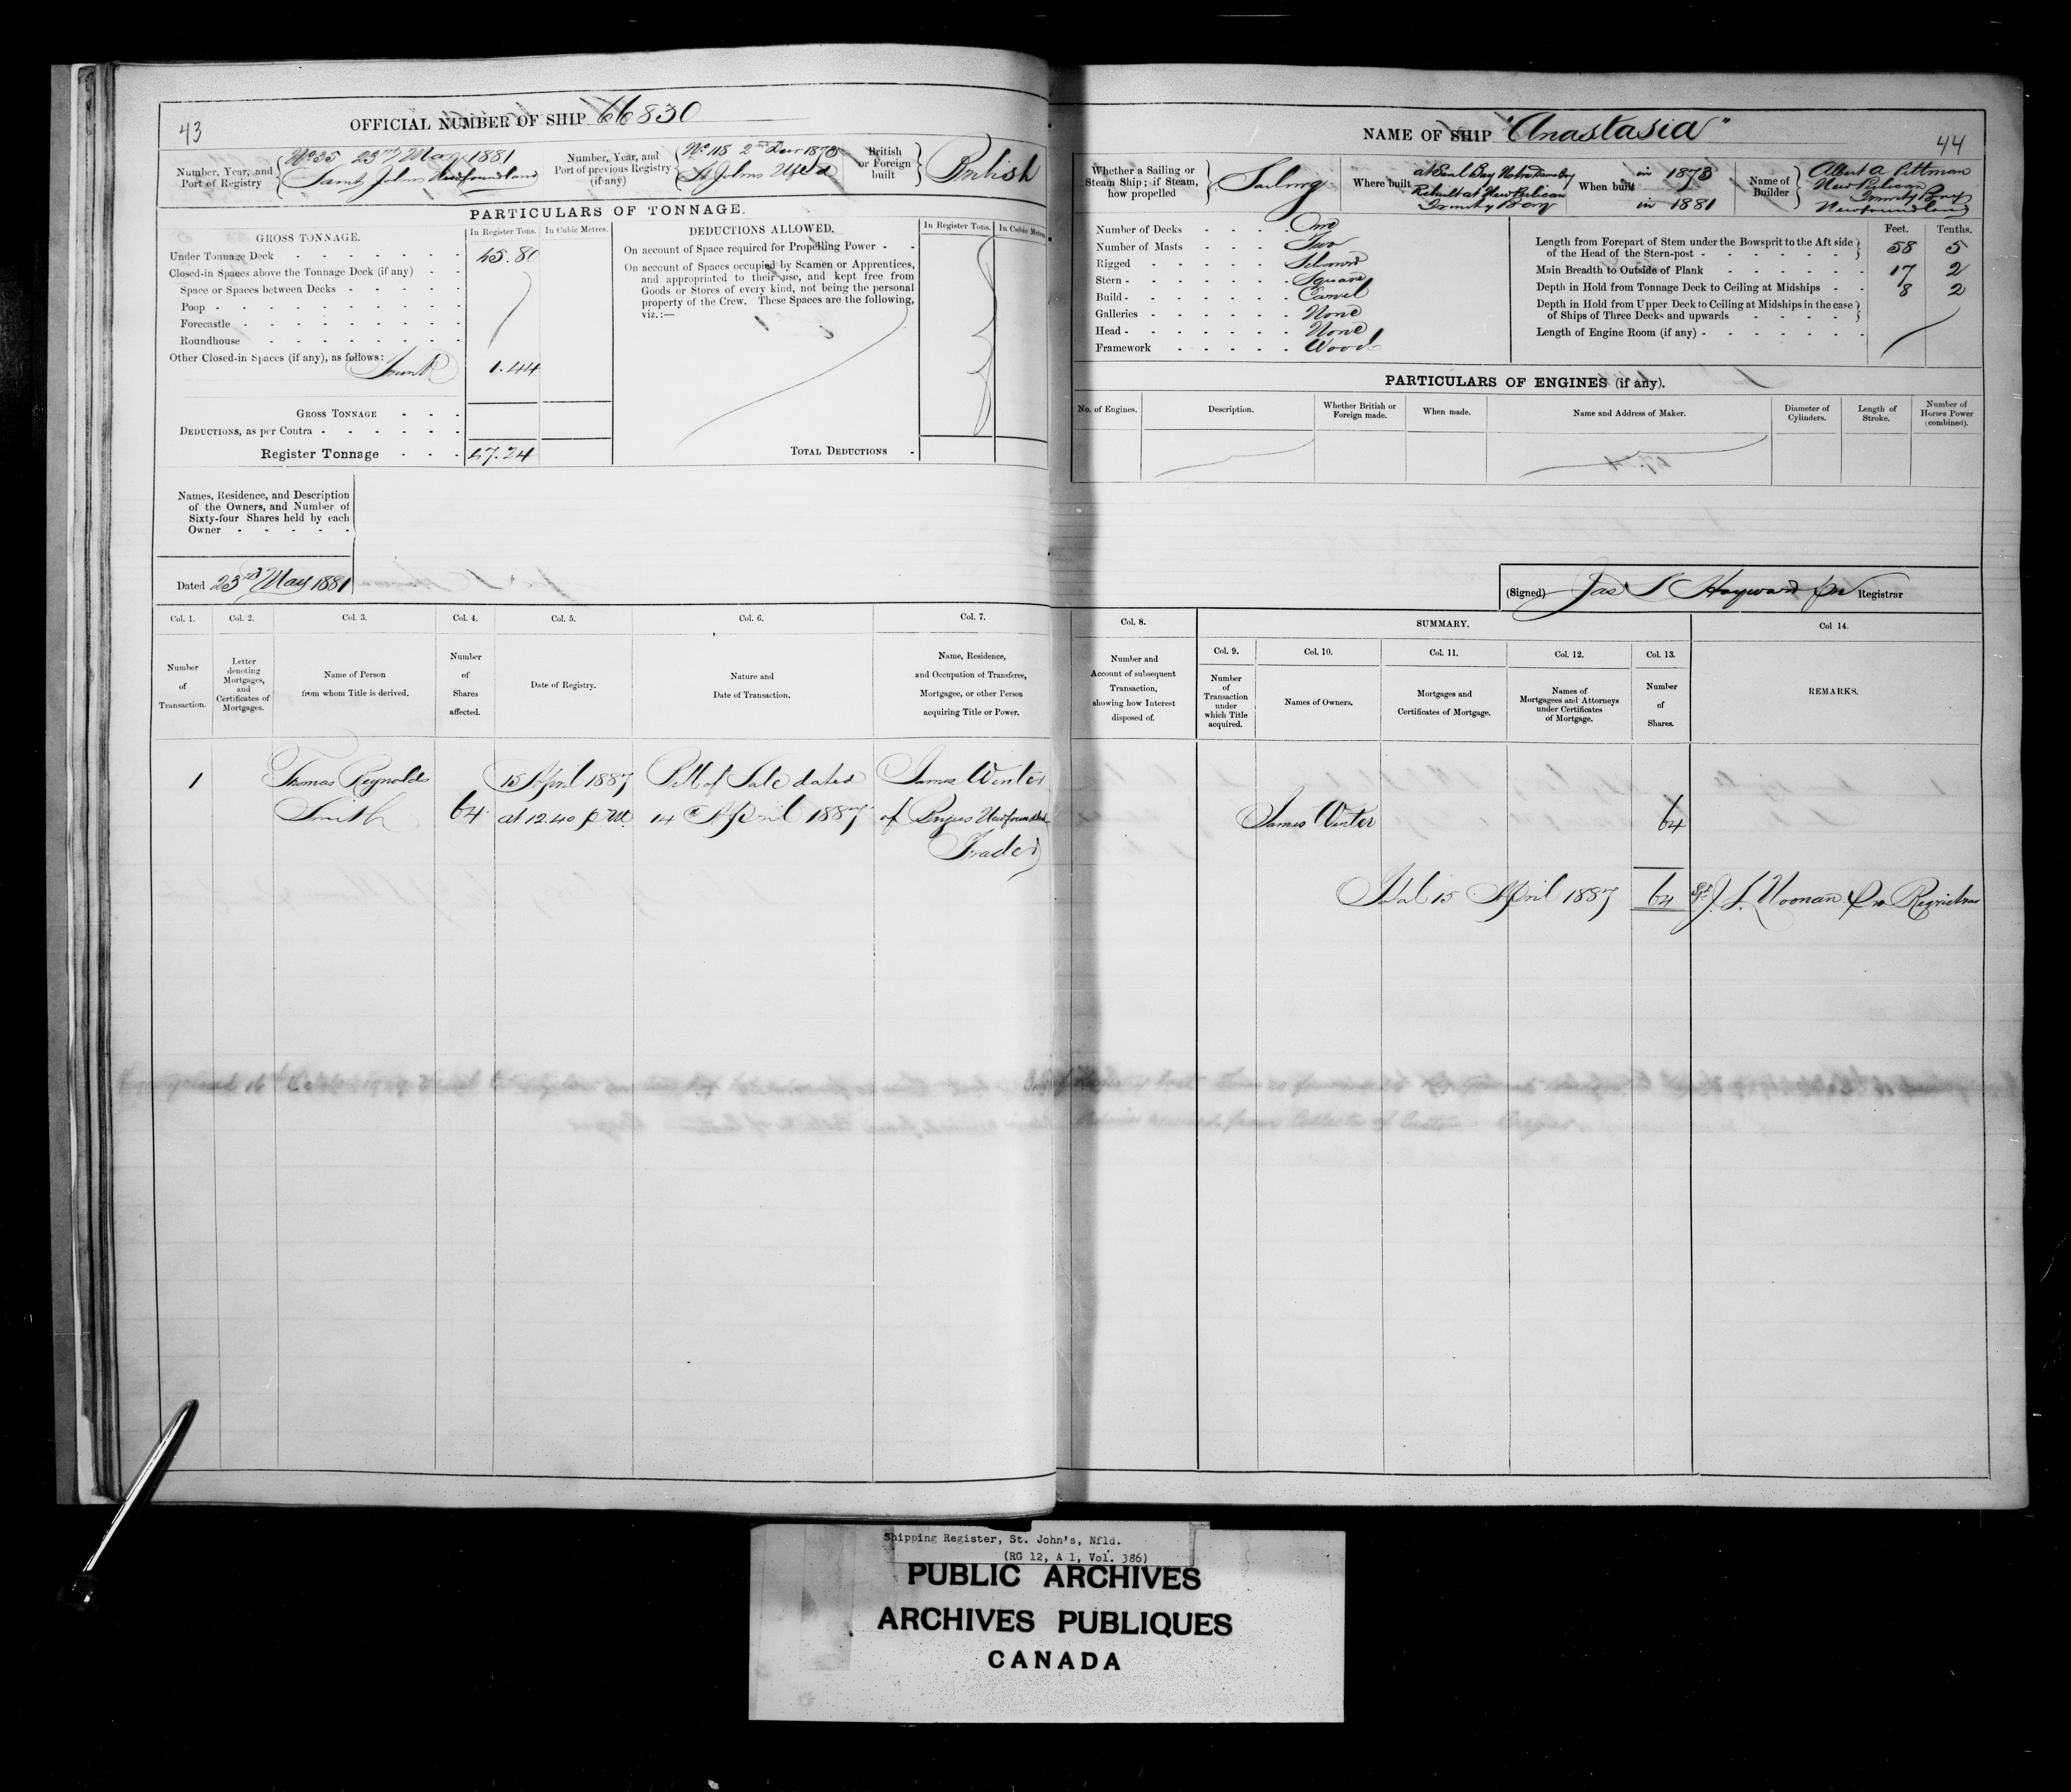 43
OFFICIAL NUMBER OF SHIP 66830
Number, Year, and Port of Registry
No 35 23rd May 1881
Saint Johns Newfoundland
Number, Year, and Port of previous Registry (if any)
No 118 2nd Decr 1873
St Johns Nfld
British or Foreign built
British
PARTICULARS OF TONNAGE.
GROSS TONNAGE.
In Register Tons.
In Cubic Metres.
Under Tonnage Deck 45.80
Closed-in Spaces above the Tonnage Deck (if any)
Space or Spaces between Decks
Poop
Forecastle
Roundhouse
Other Closed-in Spaces (if any), as follows:
Trunk 1.44
GROSS TONNAGE
DEDUCTIONS, as per Contra
Register Tonnage 47.24
DEDUCTIONS ALLOWED.
In Register Tons.
In Cubic Metres.
On account of Space required for Propelling Power
On account of Spaces occupied by Seamen or Apprentices,
and appropriated to their use, and kept free from
Goods or Stores of every kind, not being the personal
property of the Crew. These Spaces are the following,
viz.:—
TOTAL DEDUCTIONS
Names, Residence, and Description
of the Owners, and Number of
Sixty-four Shares held by each
Owner
Dated 23rd May 1881
Col. 1.
Number of Transaction.
Col. 2.
Letter denoting Mortgages, and Certificates of Mortgages.
Col. 3.
Name of Person from whom Title is derived.
Col. 4.
Number of Shares affected.
Col. 5.
Date of Registry.
Col. 6.
Nature and Date of Transaction.
Col. 7.
Name, Residence, and Occupation of Transferee, Mortgagee, or other Person acquiring Title or Power.
1 Thomas Reynolds 15 April 1887 Bill of Sale dated James Winter
Smith 64 at 12.40 p m. 14th April 1887 of Brigus Newfoundland
Trader
NAME OF SHIP "Anastasia"
44
Whether a Sailing or Steam Ship; if Steam, how propelled
Sailing
Where built
at Seal Bay Notre Dame Bay
Rebuilt at New Perlican
Trinity Bay
When built
in 1873
in 1881
Name of Builder
Albert A Pittman
New Perlican
Trinity Bay
Newfoundland
Number of Decks One
Number of Masts Two
Rigged Schooner
Stern Square
Build Carvel
Galleries None
Head None
Framework Wood
Feet. Tenths.
Length from Forepart of Stem under the Bowsprit to the Aft side
of the Head of the Stern-post 58 5
Main Breadth to Outside of Plank 17 2
Depth in Hold from Tonnage Deck to Ceiling at Midships 8 2
Depth in Hold from Upper Deck to Ceiling at Midships in the case
of Ships of Three Decks and upwards
Length of Engine Room (if any)
PARTICULARS OF ENGINES (if any).
No. of Engines.
Description.
Whether British or Foreign made.
When made.
Name and Address of Maker.
Diameter of Cylinders.
Length of Stroke.
Number of Horses Power (combined).
(Signed) Jas S Hayward pro Registrar
Col. 8.
Number and Account of subsequent Transaction, showing how Interest disposed of.
SUMMARY.
Col. 9.
Number of Transaction under which Title acquired.
Col. 10.
Names of Owners.
Col. 11.
Mortgages and Certificates of Mortgage.
Col. 12.
Names of Mortgagees and Attorneys under Certificates of Mortgage.
Col. 13.
Number of Shares.
Col 14.
REMARKS.
James Winter 64
Total 15 April 1887 64 Sgd J. L. Noonan Pro Registrar
Shipping Register, St. John's, Nfld.
(RG 12, A 1, Vol. 386)
PUBLIC ARCHIVES
ARCHIVES PUBLIQUES
CANADA